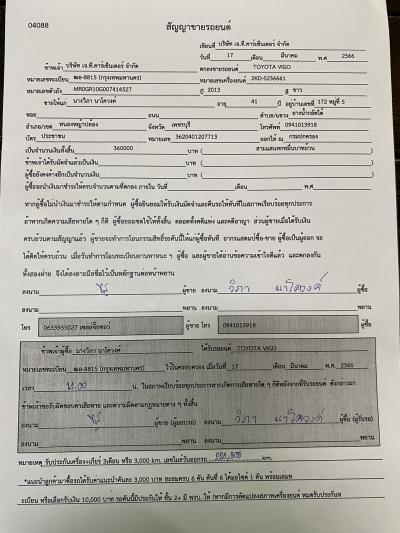 04088
สัญญาขายรถยนต์
เขียนที่ บริษัท เจ.ที.คาร์เซ็นเตอร์ จำกัด
วันที่ 17 เดือน มีนาคม พ.ศ 2566
ข้าพเจ้า บริษัท เจ.ที.คาร์เซ็นเตอร์ จำกัด ตกลงขายรถยนต์ TOYOTA VIGO
หมายเลขทะเบียน ฒอ-8815 (กรุงเทพมหานคร) หมายเลขเครื่องยนต์ 2KD-5236661
หมายเลขตัวถัง MR0GR10G007414527 ปี 2013 สี ขาว
ขายให้แก่ นางวิภา นาใตวงค์ อายุ 41 ปี อยู่บ้านเลขที่ 172 หมู่ที่ 5
ซอย ถนน ตำบล/แขวง ยางน้ำกลัดใต้
อำเภอ/เขต หนองหญ้าปล้อง จังหวัด เพชรบุรี โทรศัพท์ 0941013918
บัตร ประชาชน หมายเลข 3620401207713 ออกให้ ณ กรมปกครอง
เป็นจำนวนเงินทั้งสิ้น 360000 บาท ( สามแสนหกหมื่นบาทถ้วน
ข้าพเจ้าได้รับมัดจำแล้วเป็นเงิน บาท (
ผู้ซื้อยังคงค้างอีกเป็นจำนวนเงิน บาท (
ผู้ซื้อจะนำเงินมาชำระให้ครบจำนวนตามที่ตกลง ภายใน วันที่ เดือน พ.ศ
หากผู้ซื้อไม่นำเงินมาชำระให้ตามกำหนด ผู้ซื้อยินยอมให้รับเงินมัดจำและคืนรถให้ทันทีในสภาพเรียบร้อยทุกประการ
ถ้าหากเกิดความเสียหายใด ๆ ก็ดี ผู้ซื้อยอมชดใช้ให้ทั้งสิ้น ตลอดทั้งคดีแพ่ง และคดีอาญา ส่วนผู้ขายเมื่อได้รับเงิน
ครบถ้วนตามสัญญาแล้ว ผู้ขายจะทำการโอนกรรมสิทธิ์รถคันนี้ให้แก่ผู้ซื้อทันที อากรแสตมป์ซื้อ-ขาย ผู้ซื้อเป็นผู้ออก จะ
ได้คิดให้ครบถ้วน เมื่อวันทำการโอนทะเบียนยานพาหนะ ฯ ผู้ซื้อ และผู้ขายได้อ่านข้อความเข้าใจดีแล้ว และตกลงกัน
ทั้งสองฝ่าย จึงได้ลงลายมือชื่อไว้เป็นหลักฐานต่อหน้าพยาน
ลงนาม ผู้ขาย ลงนาม วิภา นาใตวงค์ ผู้ซื้อ
ลงนาม พยาน ลงนาม พยาน
โทร 0633955027 เซลล์จี๊กซอว์ ผู้ขาย โทร 0941013918 ผู้ซื้อ
ข้าพเจ้าผู้ซื้อ นางวิภา นาใตวงค์ ได้รับรถยนต์ TOYOTA VIGO
หมายเลขทะเบียน ฒอ-8815 (กรุงเทพมหานคร) ไว้ในครอบครอง เมื่อวันที่ 17 เดือน มีนาคม พ.ศ. 2566
เวลา น. ในสภาพเรียบร้อยทุกประการหากเกิดการเสียหายใด ๆ ก็ดีหลังจากที่รับรถยนต์ ดังกล่าวมา
ข้าพเจ้าขอรับผิดชอบค่าเสียหาย และความผิดตามกฎหมายต่าง ๆ ทั้งสิ้น
ลงนาม ผู้ขาย (ผู้มอบรถ) ลงนาม วิภา นาใตวงค์ ผู้ซื้อ (ผู้รับรถ)
ลงนาม พยาน ลงนาม พยาน
หมายเหตุ รับประกันเครื่อง+เกียร์ 3เดือน หรือ 3,000 km. เลขไมล์วันออกรถ km.
*แนะนำลูกค้ามาซื้อรถได้รับค่าแนะนำคันละ 3,000 บาท สะสมครบ 6 คัน คันที่ 6 ได้มอไซค์ 1 คัน พร้อมเล่มท
ะเบียน หรือเลือกรับเงิน 10,000 บาท รถคันนี้มีประกันให้ ชั้น 2+ มี พรบ. ให้ (หากมีการดัดแปลงสภาพเครื่องยนต์ หมดรับประกันท